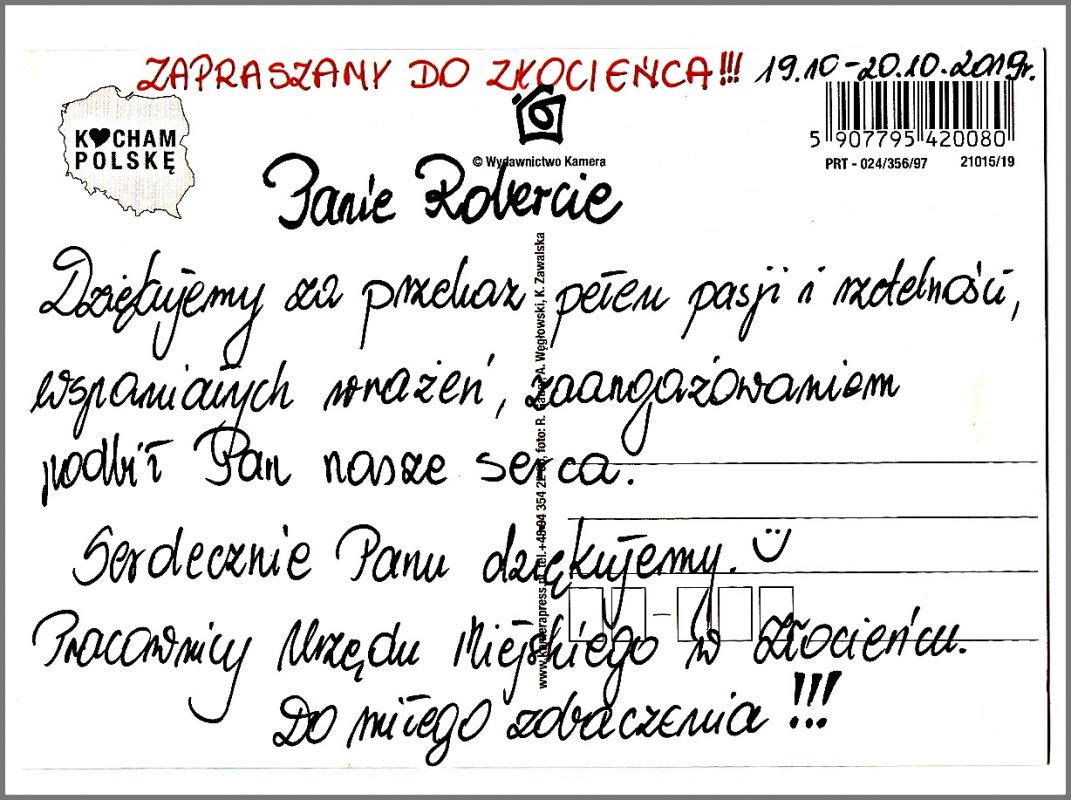 ZAPRASZAMY DO ZŁOCIEŃCA!!! 19.10-20.10.2019r.
K♥CHAM
POLSKĘ
5 907795 420080
© Wydawnictwo Kamera
PRT - 024/356/97 21015/19
Panie Robercie
Dziękujemy za przekaz pełen pasji i rzetelności,
wspaniałych wrażeń, zaangażowaniem
podbił Pan nasze serca.
Serdecznie Panu dziękujemy.
Pracownicy Urzędu Miejskiego w Złocieńcu.
Do miłego zobaczenia !!!
www.kamerapress.pl, tel.+48 94 354 foto: R. A. Węgłowski, K. Zawalska